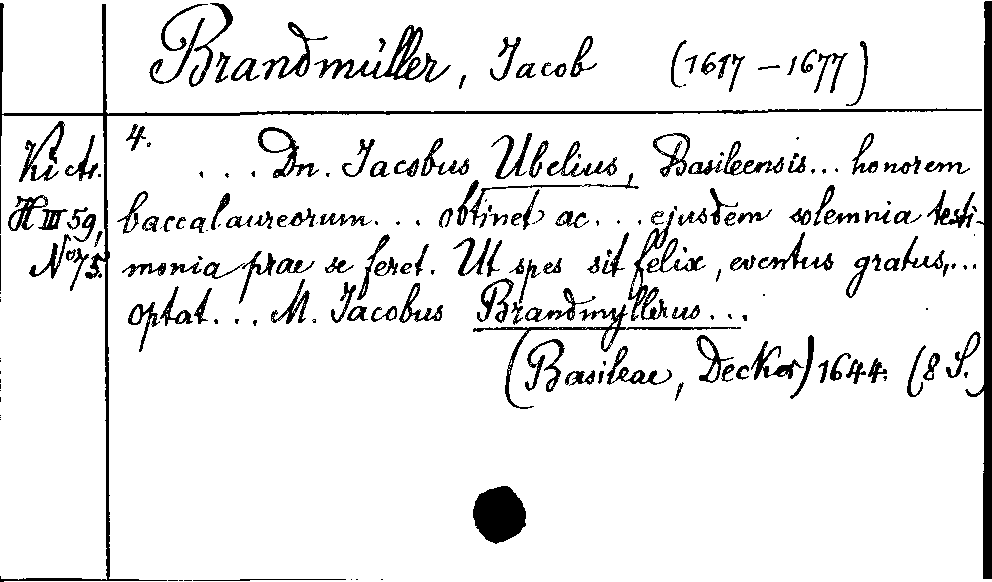 Brandmüller, Jacob (1617 – 1677)
4.
Ki ct.
H III 59,
No 75.
... Dn. Jacobus Ubelius, Basileensis... honorem
baccalaureorum... obtinet ac... ejusdem solemnia testi-
monia prae se feret. Ut spes sit felix, eventus gratus,...
optat... M. Jacobus Brandmyllerus...
(Basileae, Decker) 1644. (8 S.)